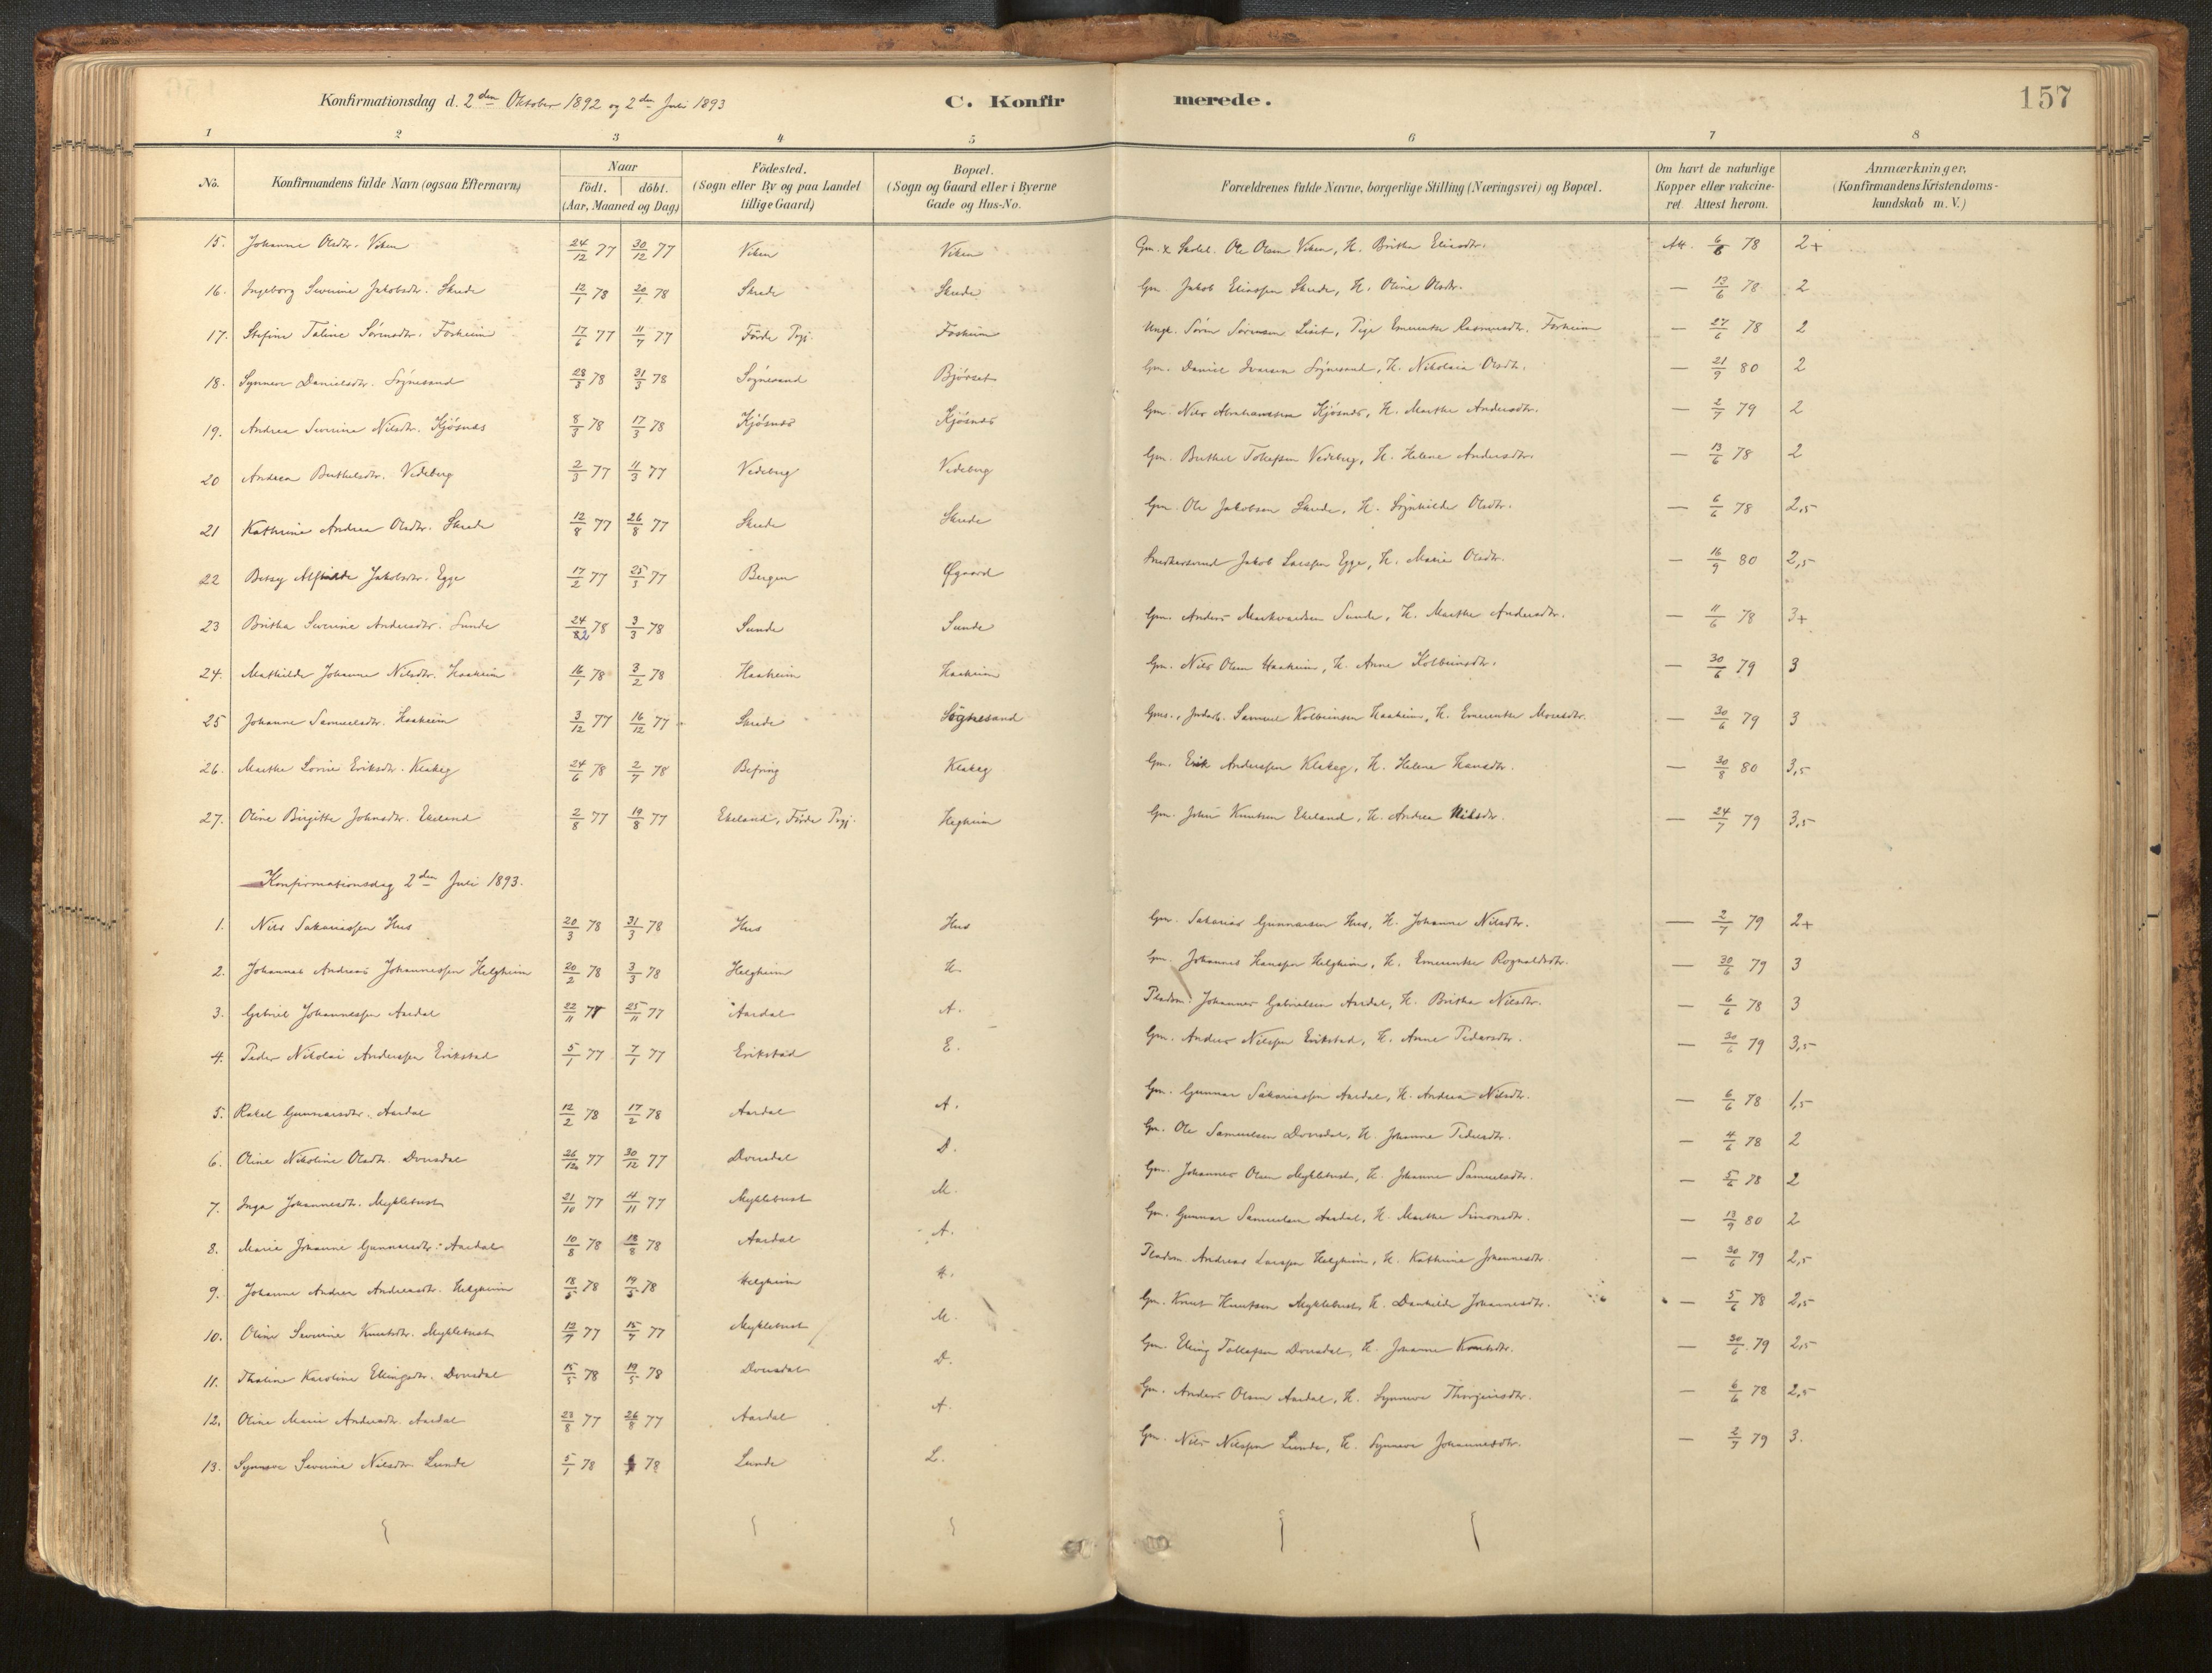 Konfirmationsdag d. 2den Oktober 1892 og 2den Juli 1893
C. Konfirmerede.
157
1 2 3 4 5 6 7 8
No. Konfirmandens fulde Navn (ogsaa Efternavn) Naar födt. döbt. (Aar, Maaned og Dag) Födested. (Sogn eller By og paa Landet tillige Gaard) Bopæl. (Sogn og Gaard eller i Byerne Gade og Hus-No. Forældrenes fulde Navne, borgerlige Stilling (Næringsvei) og Bopæl. Om havt de naturlige Kopper eller vakcineret. Attest herom. Anmærkninger. (Konfirmandens Kristendomskundskab m. V.)
15. Johanne Olsdtr. Viken 24/12 77 30/12 77 Viken Viken Gm. & Skolel. Ole Olsen Viken, H. Britha Eliasdtr. Att. 6/6 78 2+
16. Ingeborg Severine Jakobsdtr. Skrede 12/1 78 20/1 78 Skrede Skrede Gm. Jakob Eliassen Skrede, H. Oline Olsdtr. — 13/6 78 2
17. Stefine Taline Sörensdtr. Foskeim 17/6 77 11/7 77 Förde Pgj. Foskeim Ungk. Sören Sörensen, Pige Emerentse Rasmusdtr. Foskeim — 27/6 78 2
18. Synneve Danielsdtr. Sögnesand 28/3 78 31/3 78 Sögnesand Björset Gm. Daniel Ivarsen Sögnesand, H. Nikolaia Olsdtr. — 21/9 80 2
19. Andrea Severine Nilsdtr. Kjösnæs 8/3 78 17/3 78 Kjösnæs Kjösnæs Gm. Nils Abrahamsen Kjösnæs, H. Marthe Andersdtr. — 2/7 79 2
20 Andrea Berthelsdtr. Vedeberg 2/3 77 11/3 77 Vedeberg Vedeberg Gm. Berthel Tollefsen Vedeberg, H. Helene Andersdtr. — 13/6 78 2
21 Kathrine Andrea Olsdtr. Skrede 12/8 77 26/8 77 Skrede Skrede Gm. Ole Jakobsen Skrede, H. Sögnhilde Olsdtr. — 6/6 78 2,5
22 Betsy Alfhilde Jakobsdtr. Egge 17/2 77 25/3 77 Bergen Øgaard Snedkersvend Jakob Larssen Egge, H. Marie Olsdtr. — 16/9 80 2,5
23 Britha Severine Andersdtr. Sunde 24/2 78 3/3 78 Sunde Sunde Gm. Anders Markvardsen Sunde, H. Marthe Andersdtr. — 11/6 78 3+
24. Mathilde Johanne Nilsdtr. Haaheim 16/1 78 3/2 78 Haaheim Haaheim Gm. Nils Olsen Haaheim, H. Anne Kolbeinsdtr. — 30/6 79 3
25 Johanne Samuelsdtr. Haaheim 3/12 77 16/12 77 Skrede Sögnesand Gms., Jordarb. Samuel Kolbeinsen Haaheim, H. Emerentse Mosesdtr. — 30/6 79 3
26. Marthe Lovise Eriksdtr. Klakeg 24/6 78 2/7 78 Befring Klakeg Gm. Erik Anderssen Klakeg, H. Helene Hansdtr. — 30/8 80 3,5
27. Oline Birgitte Johnsdtr. Ekeland 2/8 77 19/8 77 Ekeland, Förde Pgj. Hegheim Gm. John Knutsen Ekeland, H. Andrea Nilsdtr. — 24/7 79 3,5
Konfirmationsdag 2den Juli 1893.
1. Nils Sakariassen Hus 20/3 78 31/3 78 Hus Hus Gm. Sakarias Gunnarsen Hus, H. Johanne Nilsdtr. — 2/7 79 2+
2. Johannes Andreas Johannessen Helgheim 20/2 78 3/3 78 Helgheim H. Gm. Johannes Hanssen Helgheim, H. Emerentse Rognaldsdtr. — 30/6 79 3
3. Gabriel Johannessen Aardal 22/11 77 25/11 77 Aardal A. Pladsm. Johannes Gabrielsen Aardal, H. Britha Nilsdtr. — 6/6 78 3
4. Peder Nikolai Anderssen Erikstad 5/1 77 7/1 77 Erikstad E. Gm. Anders Nilssen Erikstad, H. Anne Pedersdtr. — 30/6 79 3,5
5. Rakel Gunnarsdtr. Aardal 12/2 78 17/2 78 Aardal A. Gm. Gunnar Sakariassen Aardal, H. Andrea Nilsdtr. — 6/6 78 1,5
6. Oline Nikoline Olsdtr. Dvergsdal 26/12 77 30/12 77 Dvergsdal D. Gm. Ole Samuelsen Dvergsdal, H. Johanne Pedersdtr. — 4/6 78 2
7. Inga Johannesdtr. Myklebust 21/10 77 4/11 77 Myklebust M. Gm. Johannes Olsen Myklebust, H. Johanne Samuelsdtr. — 5/6 78 2
8. Marie Johanne Gunnarsdtr. Aardal 10/8 78 18/8 78 Aardal A. Gm. Gunnar Samuelsen Aardal, H. Marthe Simonsdtr. — 13/9 80 2
9. Johanne Andrea Andreasdtr. Helgheim 18/5 78 19/5 78 Helgheim H. Pladsm. Andreas Larssen Helgheim, H. Kathrine Johannesdtr. — 30/6 79 2,5
10. Oline Severine Knutsdtr. Myklebust 12/7 77 15/7 77 Myklebust M. Gm. Knut Knutsen Myklebust, H. Dankilde Johannesdtr. — 5/6 78 2,5
11. Thaline Karoline Ellingsdtr. Dvergsdal 15/5 78 19/5 78 Dvergsdal D. Gm. Elling Tollefsen Dvergsdal, H. Johanne Knutsdtr. — 30/6 79 2,5
12. Oline Marie Andersdtr. Aardal 23/8 77 26/8 77 Aardal A. Gm. Anders Olsen Aardal, H. Synneve Thorgeirsdtr. — 6/6 78 2,5
13. Synneve Severine Nilsdtr. Lunde 5/1 78 78 Lunde L. Gm. Nils Nilssen Lunde, H. Synneve Johannesdtr. — 2/7 79 3.